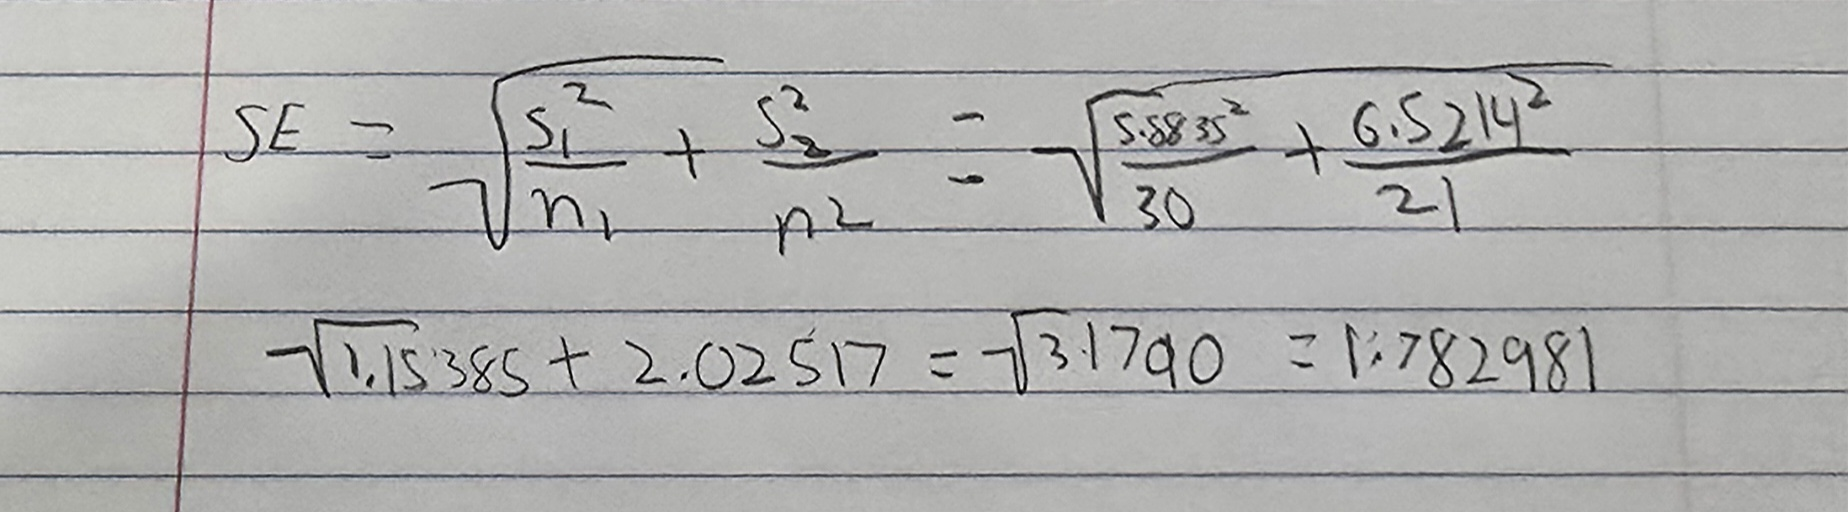 SE = √(s₁²/n₁ + s₂²/n2) = √(5.8835²/30 + 6.5214²/21)
√1.15385 + 2.02517 = √3.1790 = 1.782981